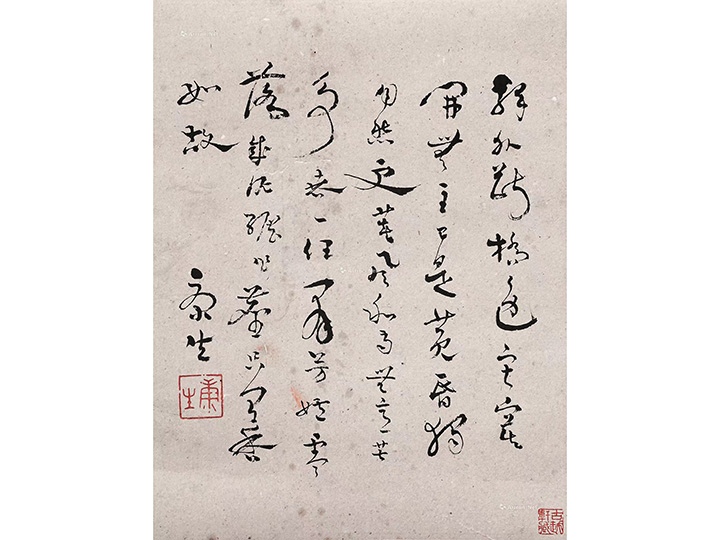 驛外斷橋邊寂寞
開無主已是黃昏獨
自愁更著風和雨無意苦
爭春一任群芳妒零
落成泥碾作塵只有香
如故
康生
康生